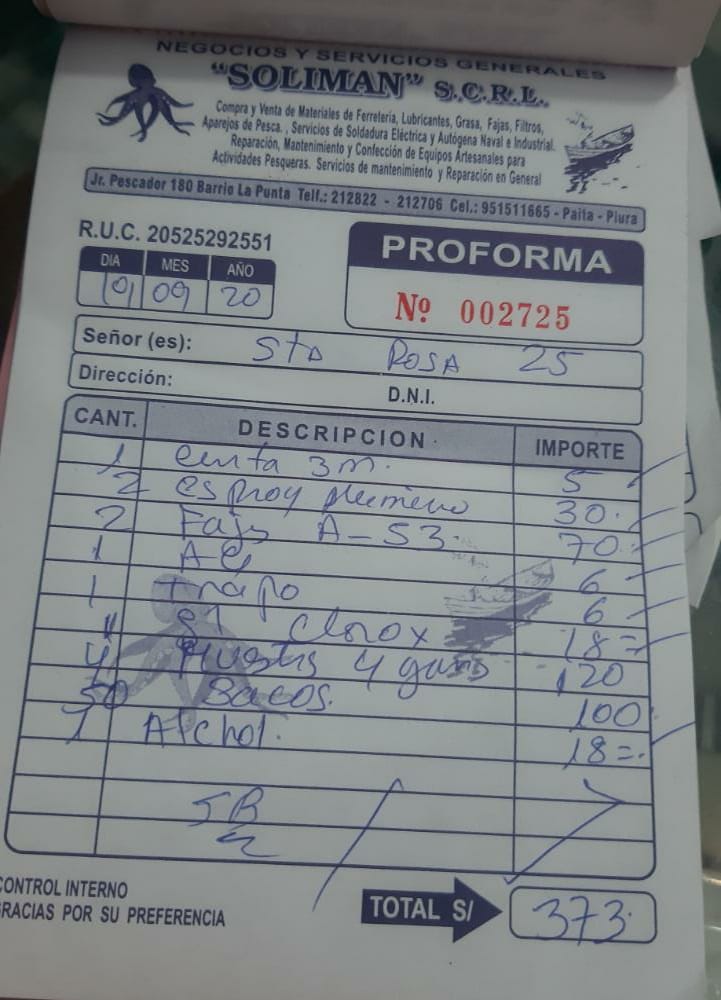 NEGOCIOS Y SERVICIOS GENERALES
"SOLIMAN" S.C.R.L.
Compra y Venta de Materiales de Ferretería, Lubricantes, Grasa, Fajas, Filtros,
Aparejos de Pesca. , Servicios de Soldadura Eléctrica y Autógena Naval e Industrial.
Reparación, Mantenimiento y Confección de Equipos Artesanales para
Actividades Pesqueras. Servicios de mantenimiento y Reparación en General
Jr. Pescador 180 Barrio La Punta Telf.: 212822 - 212706 Cel.: 951511665 - Paita - Piura
R.U.C. 20525292551
PROFORMA
DIA MES AÑO
09 20
Nº 002725
Señor (es): Sta Rosa 25
Dirección: D.N.I.
CANT. DESCRIPCION IMPORTE
1 3m. 5
2 30.
2 Faja A-53. 70.
1 6
1 trapo 6
Clorox 18=
4 y 120
50 Sacos. 100
1 Alchol. 18=.
CONTROL INTERNO
GRACIAS POR SU PREFERENCIA
TOTAL S/ 373.